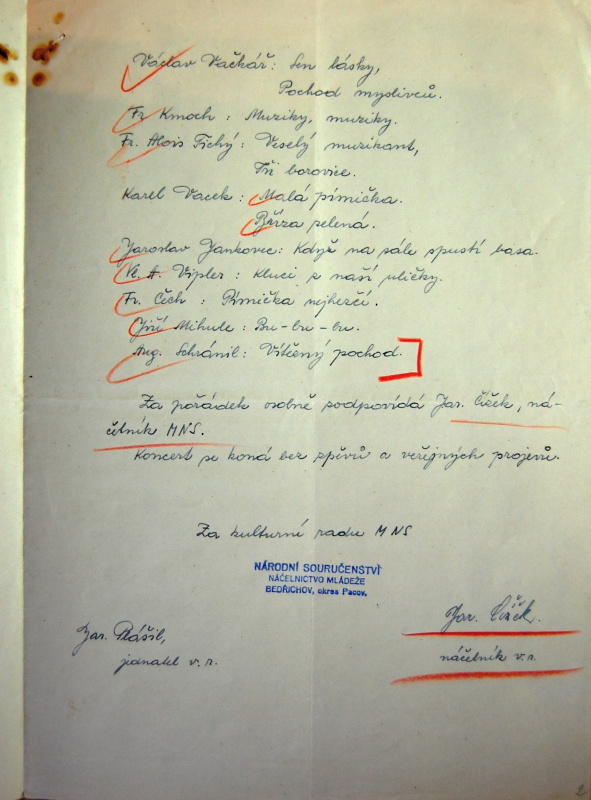 Václav Vačkář: Sen lásky,
Pochod myslivců.
Fr. Kmoch: Muziky, muziky.
Fr. Alois Tichý: Veselý muzikant,
Tři borovice.
Karel Vacek: Malá písnička.
Bříza zelená.
Jaroslav Jankovec: Když na sále spustí basa.
Vl. A. Vipler: Kluci z naší uličky.
Fr. Čech: Písnička nejhezčí.
Jiří Mihule: Bu-bu-bu.
Aug. Schránil: Vítězný pochod.
Za pořádek osobně zodpovídá Jar. Čížek, ná-
čelník MNS.
Koncert se koná bez zpěvů a veřejných projevů.
Za kulturní radu MNS
NÁRODNÍ SOURUČENSTVÍ
NÁČELNICTVO MLÁDEŽE
BEDŘICHOV, okres Pacov.
Jar. Čížek.
Jar. Plášil,
náčelník v. r.
jednatel v. r.
2